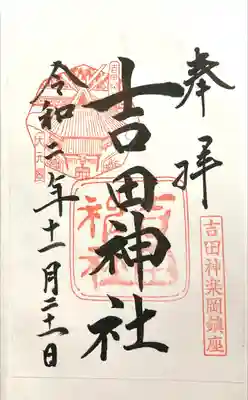 奉拝
吉田神楽岡鎮座
吉田神社
吉田神社
令和二年十一月二十一日